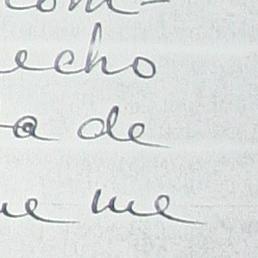 com-
echo
a de
ue me